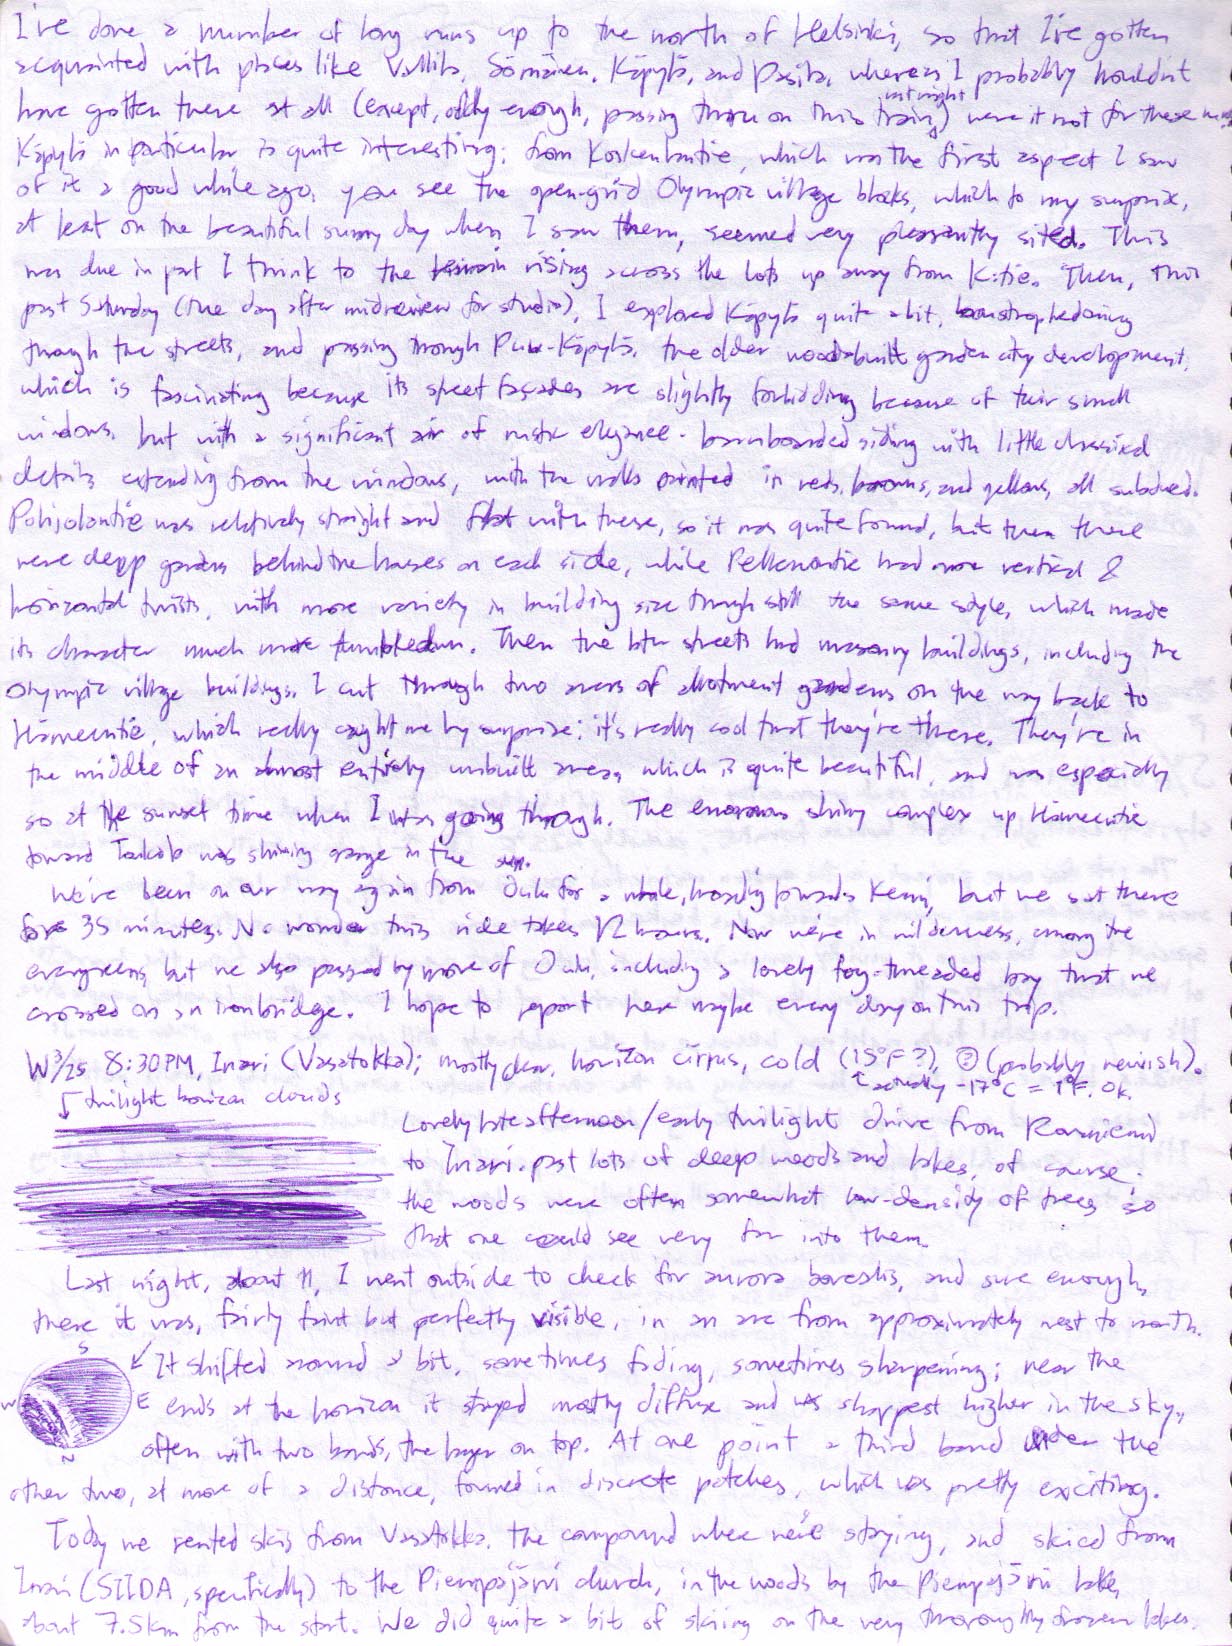 I've done a number of long runs up to the north of Helsinki, so that I've gotten
acquainted with places like Vallila, Sörnäinen, Käpylä, and Pasila, whereas I probably wouldn't
have gotten there at all (except, oddly enough, passing through on this train last night) were it not for these runs.
Käpylä in particular is quite interesting; from Koskelantie, which was the first aspect I saw
of it a good while ago, you see the open-grid Olympic village blocks, which to my surprise,
at least on the beautiful sunny day when I saw them, seemed very pleasantly sited. This
was due in part I think to the terrain rising across the lots up away from K:tie. Then, this
past Saturday (the day after midreview for studio), I explored Käpylä quite a bit, boustrophedoning
though the streets, and passing through Puu-Käpylä, the older wood-built garden city development,
which is fascinating because its street façades are slightly forbidding because of their small
windows, but with a significant air of rustic elegance - barnboarded siding with little classical
details extending from the windows, with the walls painted in reds, browns, and yellows, all subdued.
Pohjolantie was relatively straight and flat with these, so it was quite formal, but then there
were deep gardens behind the houses on each side, while Pellervontie had more vertical &
horizontal twists, with more variety in building size though still the same style, which made
its character much more tumbledown. Then the btw streets had masonry buildings, including the
Olympic village buildings. I cut through two areas of allotment gardens on the way back to
Hämeentie, which really caught me by surprise; it's really cool that they're there. They're in
the middle of an almost entirely unbuilt area, which is quite beautiful, and was especially
so at the sunset time when I was going through. The enormous shiny complex up Hämeentie
toward was shining orange in the sun.
We've been on our way again from Oulu for a while, heading towards Kemi, but we sat there
for 35 minutes. No wonder this ride takes 12 hours. Now we're in wilderness, among the
evergreens, but we also passed by more of Oulu, including a lovely fog-threaded bay that we
crossed on an iron bridge. I hope to report here maybe every day on this trip.
W 3/25 8:30 PM, Inari (Vasatokka); mostly clear, horizon cirrus, cold (15°F?), (probably newish).
↑ actually -17°C = 1°F. Ok.
↓ twilight horizon clouds
Lovely late afternoon/early twilight drive from Rovaniemi
to Inari, past lots of deep woods and lakes, of course;
the woods were often somewhat low-density of trees so
that one could see very far into them.
Last night, about 11, I went outside to check for aurora borealis, and sure enough,
there it was, fairly faint but perfectly visible, in an arc from approximately west to north.
S W E N
It shifted around a bit, sometimes fading, sometimes sharpening; near the
ends at the horizon it stayed mostly diffuse and was sharpest higher in the sky,
often with two bands, the larger on top. At one point a third band under the
other two, at more of a distance, formed in discrete patches, which was pretty exciting.
Today we rented skis from Vasatokka, the compound where we're staying, and skied from
Inari (SIIDA, specifically) to the Pielpajärvi church, in the woods by the Pielpajärvi lake,
about 7.5km from the start. We did quite a bit of skiing on the very thoroughly frozen lakes.